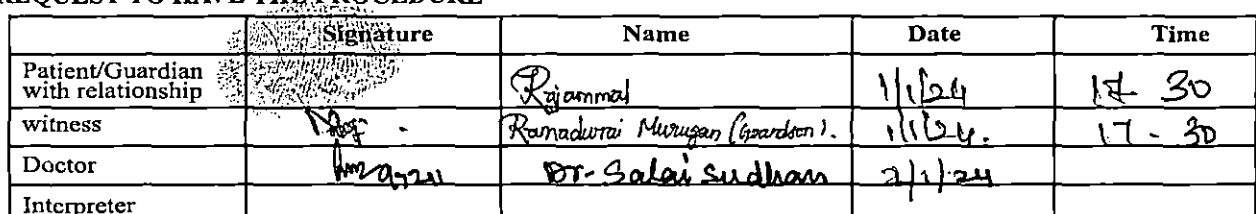 REQUEST TO HAVE THE PROCEDURE
Signature Name Date Time
Patient/Guardian
with relationship Rajammal 1/1/24 17 30
witness Ramadurai Murugan (Grandson). 1/1/24. 17 - 30
Doctor Dr. Salai Sudhan 2/1/24
Interpreter